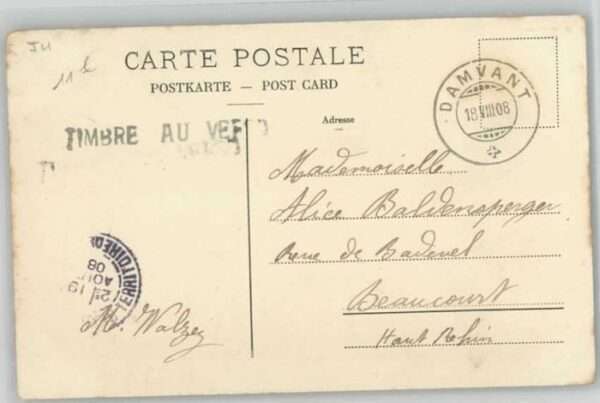 JU
11 L
CARTE POSTALE
POSTKARTE — POST CARD
Adresse
DAMVANT
18 VIII 08
TIMBRE AU VE
Mademoiselle
Alice Baldensperger
Rue de Badevel
Beaucourt
Haut Rhin
TERRITOIRE
19
AOUT
08
M. Walzer